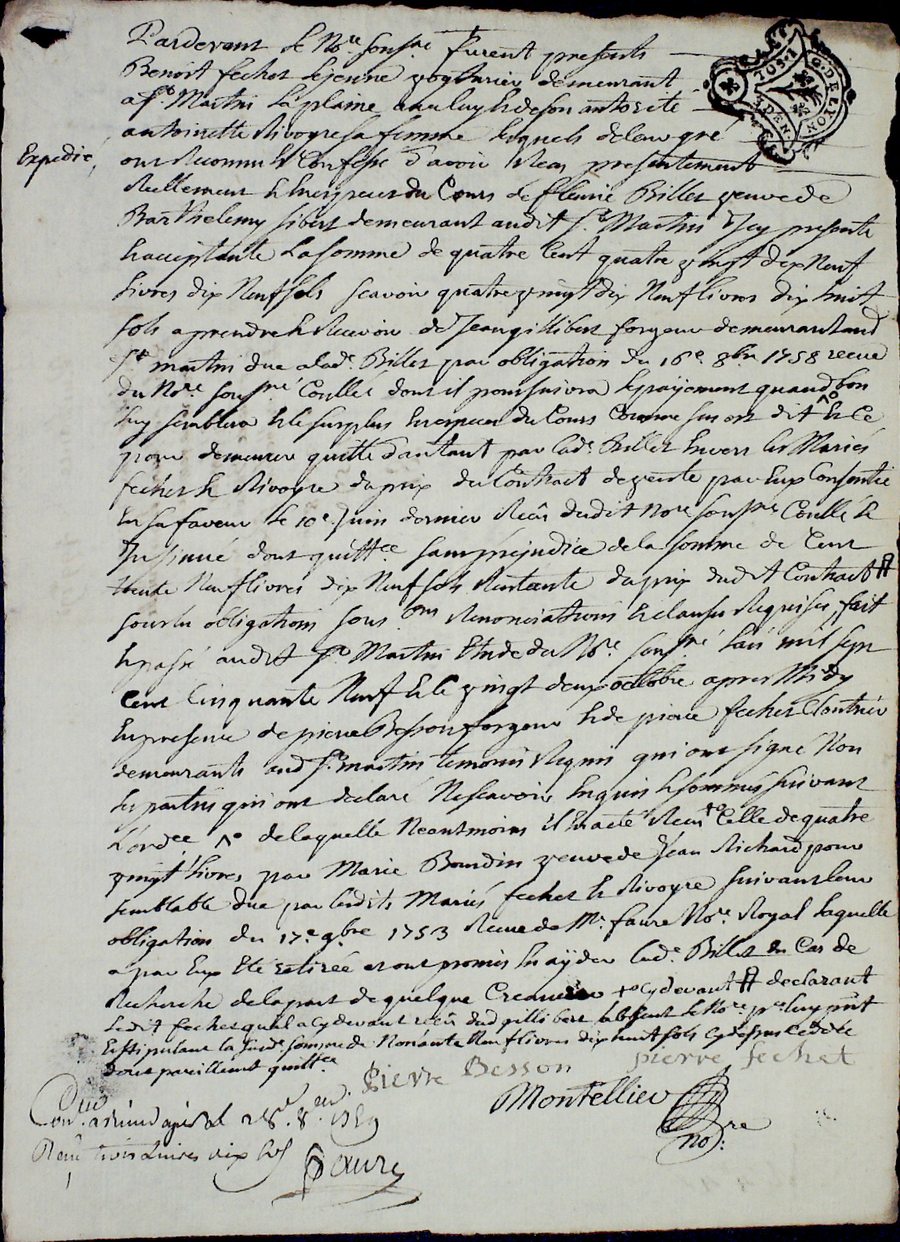 Pardevant le No.re sousne furent presents
Benoit fechet lejeune voyturier demeurant
a St. Martin la plaine
antoinette Rivoyre sa femme lesquels de leur gré
Expedié,
ont Reconnu & Confessé d'avoir Recu presentement
Reellement & En especes du Cours de fleurie Billet veuve de
Barthelemy sibert demeurant audit St. Martin Icy presente
& acceptante La somme de quatre Cent quatre vingt dix Neuf
Livres dix Neuf sols scavoir quatre vingt dix Neuf livres dix huit
sols a prendre & Recevoir de Jean gillibert forgeur demeurant aud
St. martin due a lad.e Billet par obligation du 16.e 8bre 1758 receue
du No.re sousne Coullet dont il poursuivra le payement quand bon
luy semblera & le surplus En especes du Cours Comme sus est dit & Ce
pour demeurer quitte dautant par lad.e Billet Envers les Mariés
fechet & Rivoyre du prix du Contract de vente par Eux Consentie
En sa faveur le 10e. Juin dernier Receu dudit No.re sousne Coullet &
Insinué dont quittce sans préjudice de la somme de Cent
trente Neuf livres dix Neuf sols Restante du prix dudit Contract #
sous les obligations sous.ons Renonciations & clauses Requises, fait
& passé audit St. Martin Etude du No.re sousné lan mil sept
Cent Cinquante Neuf & le vingt deux octobre apres Midy
En presence de pierre Besson forgeur & de pierre fechet Cloutrier
demeurants aud St. martin temoins Requis qui ont signé Non
les parties qui ont declaré Ne scavoir Enquis & sommés suivant
L'ordce ^o de laquelle Neantmoins il En a eté Recu Celle de quatre
vingt Livres par Marie Bourdin veuve de Jean Richard pour
semblable due par lesdits Mariés fechet & Rivoyre suivant leur
obligation du 17.e 9bre 1753 Receue de Me. faure No.re Royal laquelle
a par Eux Eté retirée et ont promis En ayder lad.e Billet En Cas de
Recherche de la part de quelque Creancier cy devant # declarant
Ledit fechet quil a cy devant receu dud gillibert absent le No.re pr luy pnt
& stipulant la susd.e somme de Nonante Neuf livres dix huit sols cy dessus cedée
dont pareillement quittce.
Pierre Besson pierre fechet
Montellier
No.re
Con.llé a 28.e 8.bre 1759
Receu trois Livres dix sols
faure
G. DE LYON